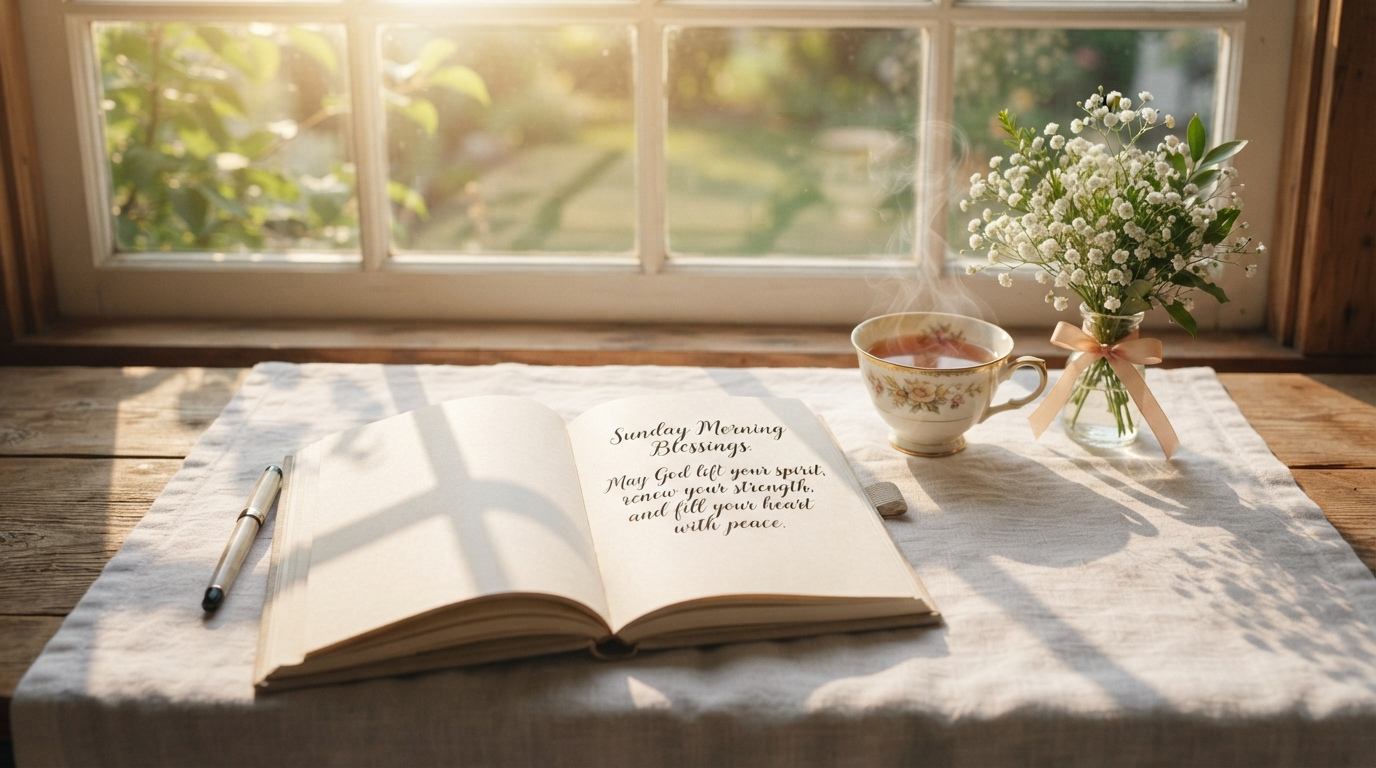 Sunday Morning
Blessings.
May God lift your spirit,
renew your strength,
and fill your heart
with peace.